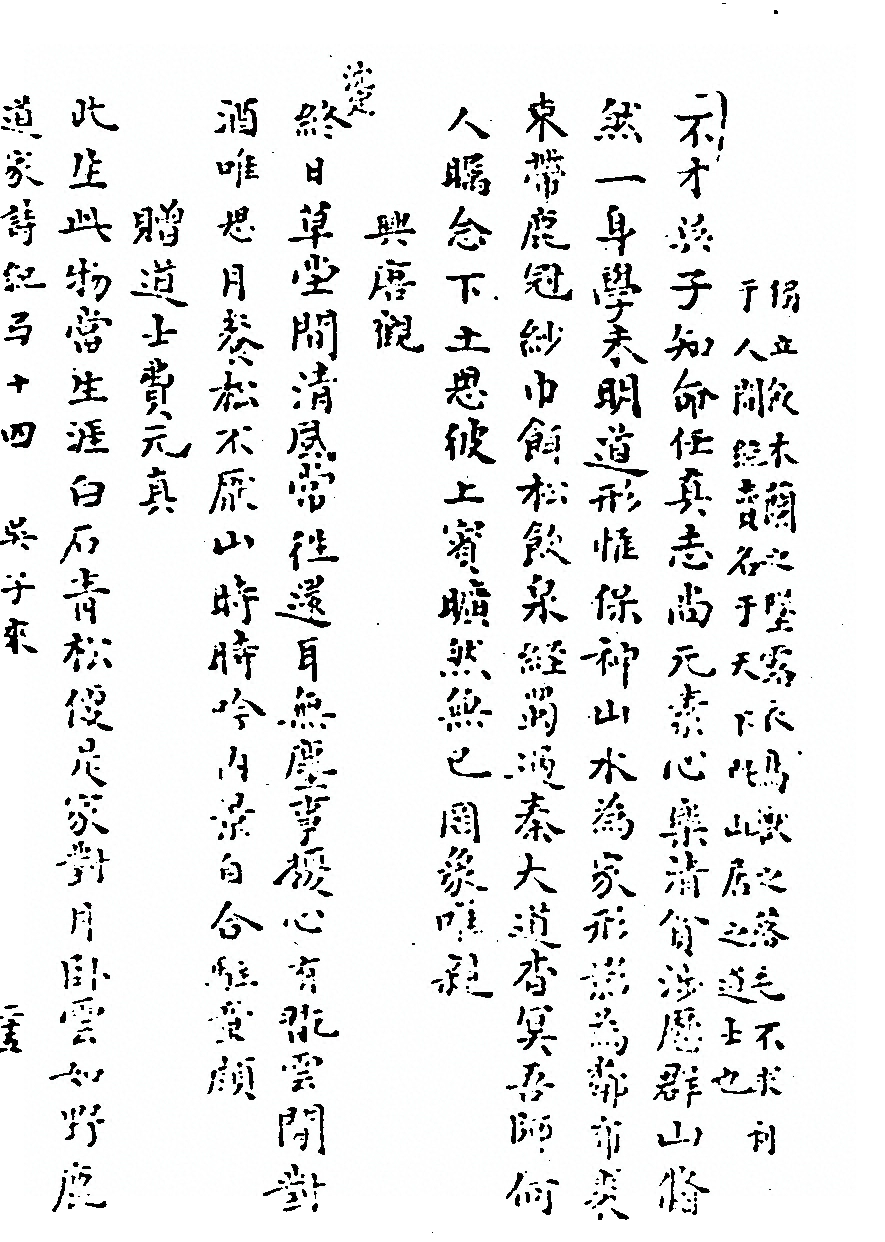 偶立飲木蘭之墜露衣鳥獸之落毛不求利
于人間絕賣名于天下此山居之道士也
不才孫子知命任真志尚元素心樂清貧涉歷群山翛
然一身學未明道形惟保神山水為家形影為鄰布裘
束帶鹿冠紗巾餌松飲泉經蜀過秦大道杳冥吾師何
人矚念下土思彼上賓曠然無已罔象唯親
興唐觀
終日草堂間清風常往還耳無塵事擾心有翫雲閒對
酒唯思月餐松不厭山時時吟內景自合駐童顏
贈道士費元真
此生此物當生涯白石青松便是家對月臥雲如野鹿
道家詩紀弓十四 吳子來